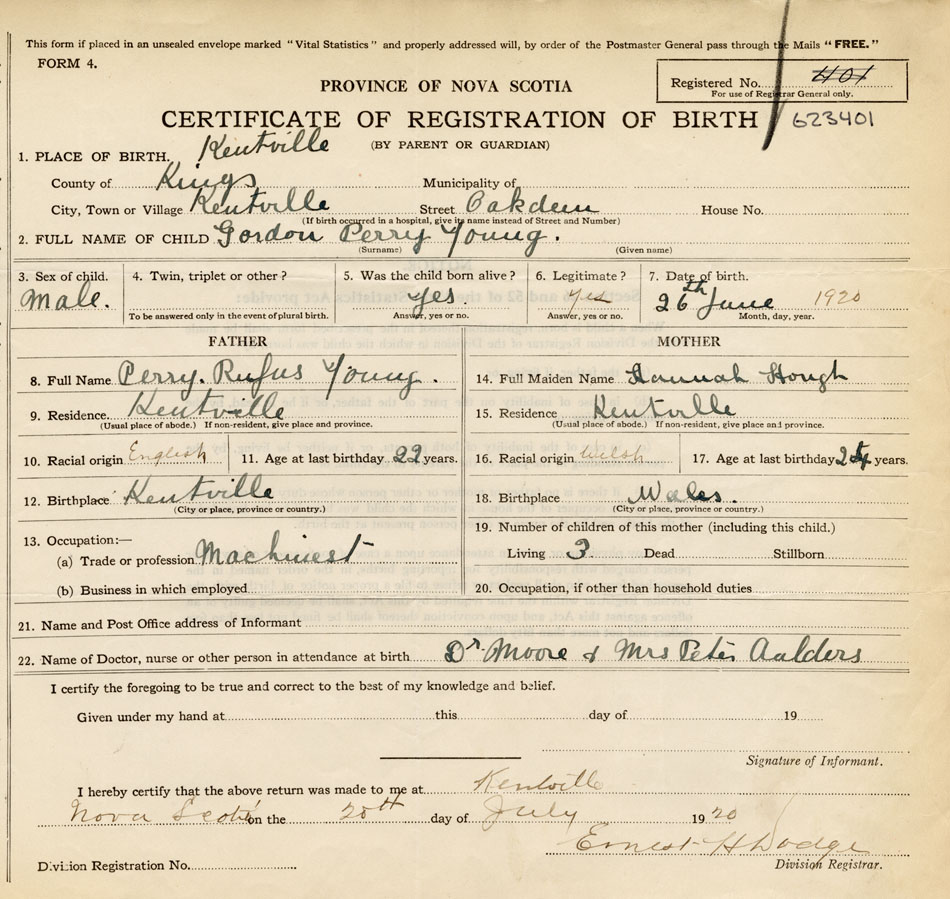 This form if placed in an unsealed envelope marked "Vital Statistics" and properly addressed will, by order of the Postmaster General pass through the Mails "FREE."
FORM 4.
Registered No. 401
For use of Registrar General only.
PROVINCE OF NOVA SCOTIA
CERTIFICATE OF REGISTRATION OF BIRTH 623401
(BY PARENT OR GUARDIAN)
1. PLACE OF BIRTH. Kentville
County of Kings Municipality of
City, Town or Village Kentville Street Oakdeen House No.
(If birth occurred in a hospital, give its name instead of Street and Number)
2. FULL NAME OF CHILD Gordon Perry Young.
(Surname) (Given name)
3. Sex of child. 4. Twin, triplet or other? 5. Was the child born alive? 6. Legitimate? 7. Date of birth.
Male. yes. yes 26th June 1920
To be answered only in the event of plural birth. Answer, yes or no. Answer, yes or no. Month, day, year.
FATHER MOTHER
8. Full Name Perry. Rufus Young. 14. Full Maiden Name Hannah Hough
9. Residence. Kentville 15. Residence Kentville
(Usual place of abode.) If non-resident, give place and province. (Usual place of abode.) If non-resident, give place and province.
10. Racial origin English 11. Age at last birthday 22 years. 16. Racial origin Welsh 17. Age at last birthday 24 years.
12. Birthplace Kentville 18. Birthplace Wales.
(City or place, province or country.) (City or place, province or country.)
13. Occupation:— 19. Number of children of this mother (including this child.)
(a) Trade or profession Machinest Living 3. Dead Stillborn
(b) Business in which employed 20. Occupation, if other than household duties
21. Name and Post Office address of Informant
22. Name of Doctor, nurse or other person in attendance at birth Dr. Moore & Mrs Peter Aalders
I certify the foregoing to be true and correct to the best of my knowledge and belief.
Given under my hand at this day of 19
Signature of Informant.
I hereby certify that the above return was made to me at Kentville
Nova Scotia on the 20th day of July 1920
Ernest H Dodge
Division Registration No. Division Registrar.